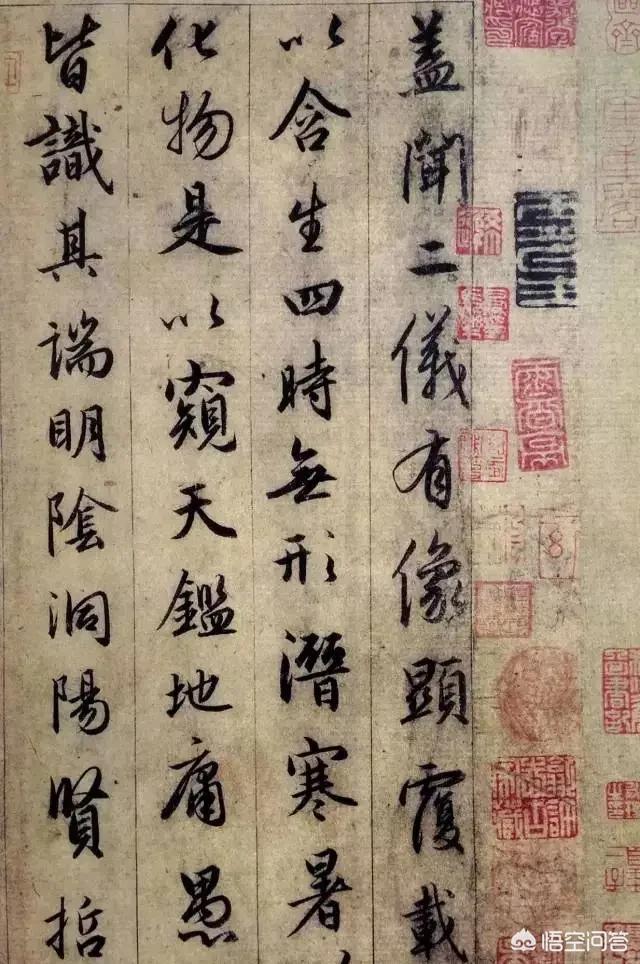 蓋聞二儀有像顯覆載
以含生四時無形潛寒暑
化物是以窺天鑑地庸愚
皆識其端明陰洞陽賢哲
悟空问答